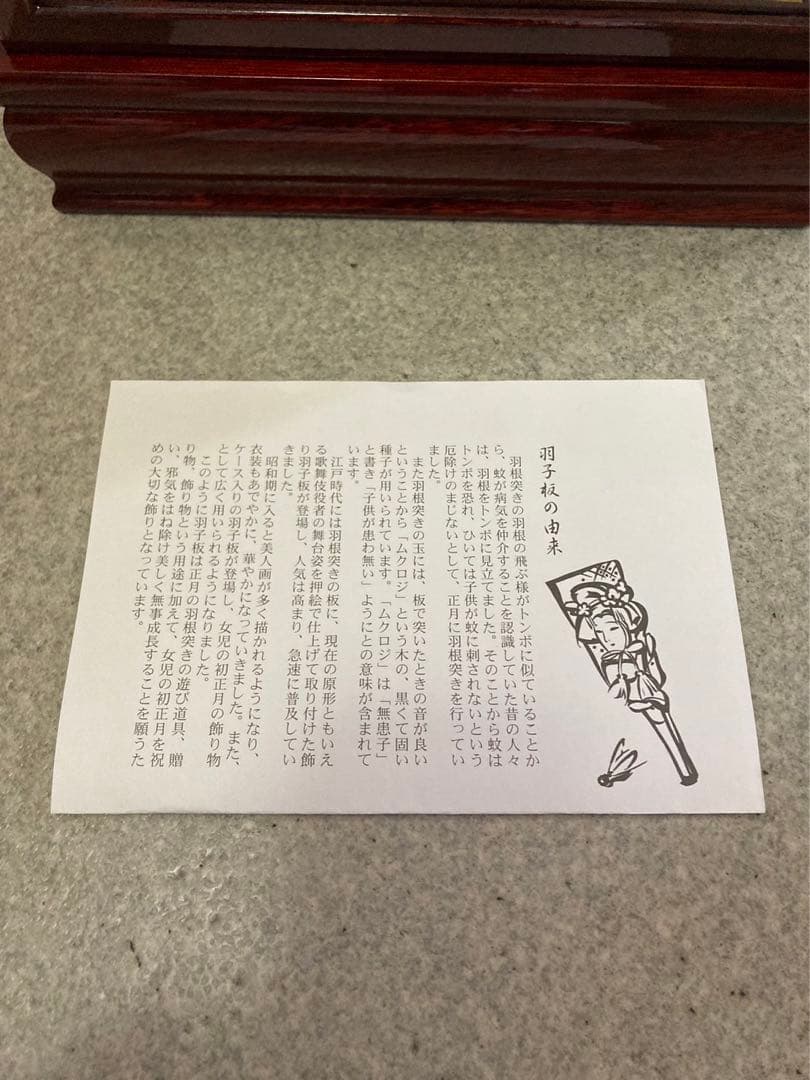 羽子板の由来
羽根突きの羽根の飛ぶ様がトンボに似ていることか
ら、蚊が病気を仲介することを認識していた昔の人々
は、羽根をトンボに見立てました。そのことから蚊は
トンボを恐れ、ひいては子供が蚊に刺されないという
厄除けのまじないとして、正月に羽根突きを行ってい
ました。
また羽根突きの玉には、板で突いたときの音が良い
ということから「ムクロジ」という木の、黒くて固い
種子が用いられています。「ムクロジ」は「無患子」
と書き「子供が患わ無い」ようにとの意味が含まれて
います。
江戸時代には羽根突きの板に、現在の原形ともいえ
る歌舞伎役者の舞台姿を押絵で仕上げて取り付けた飾
り羽子板が登場し、人気は高まり、急速に普及してい
きました。
昭和期に入ると美人画が多く描かれるようになり、
衣装もあでやかに、華やかになっていきました。また、
ケース入りの羽子板が登場し、女児の初正月の飾り物
として広く用いられるようになりました。
このように羽子板は正月の羽根突きの遊び道具、贈
り物、飾り物という用途に加えて、女児の初正月を祝
い、邪気をはね除け美しく無事成長することを願うた
めの大切な飾りとなっています。